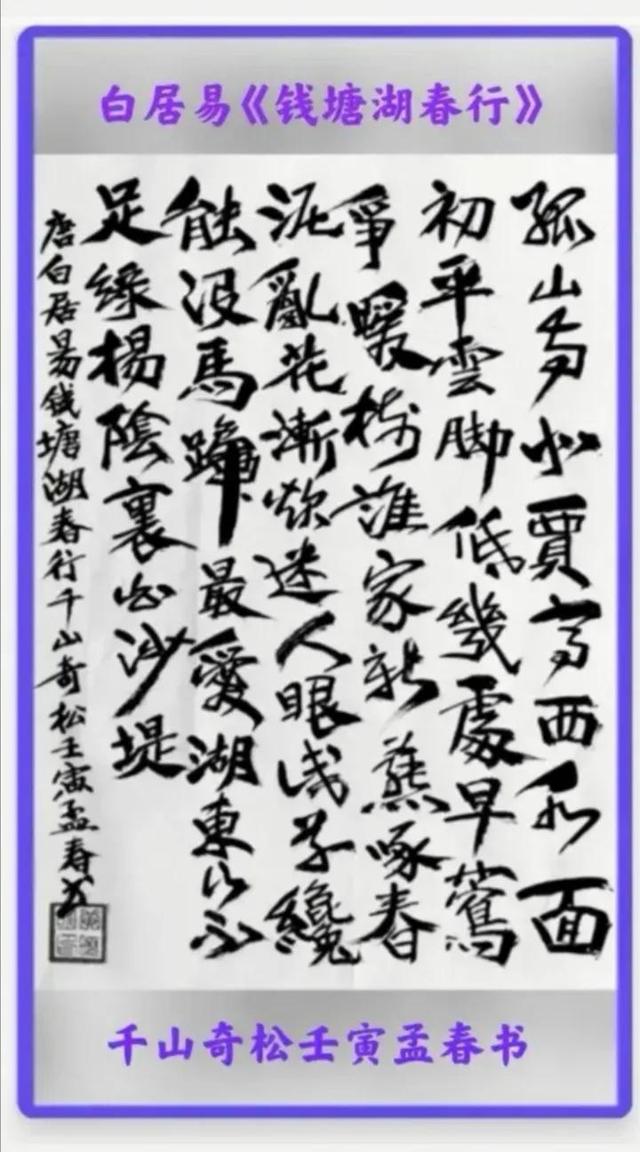 白居易《钱塘湖春行》
孤山寺北賈亭西水面
初平雲脚低幾處早鶯
爭暖樹誰家新燕啄春
泥亂花漸欲迷人眼浅草纔
能没馬蹄最愛湖東行不
足綠楊陰裏白沙堤
唐白居易钱塘湖春行千山奇松壬寅孟春书
千山奇松壬寅孟春书